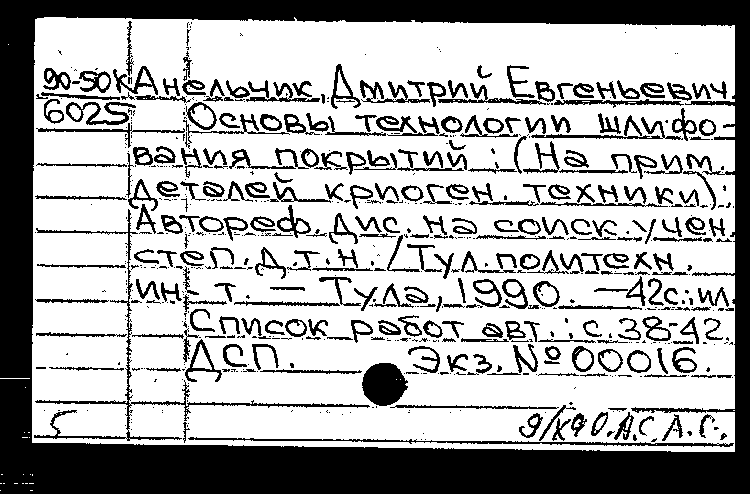 90-50К Анельчик, Дмитрий Евгеньевич.
6025 Основы технологии шлифо-
вания покрытий : (На прим.
деталей криоген. техники) :
Автореф. дис. на соиск. учен.
степ. д.т.н. / Тул. политехн.
ин-т. — Тула, 1990. — 42с.: ил.
Список работ авт.: с. 38-42.
ДСП. Экз. № 00016.
5 9/X90. А.С. А.С.